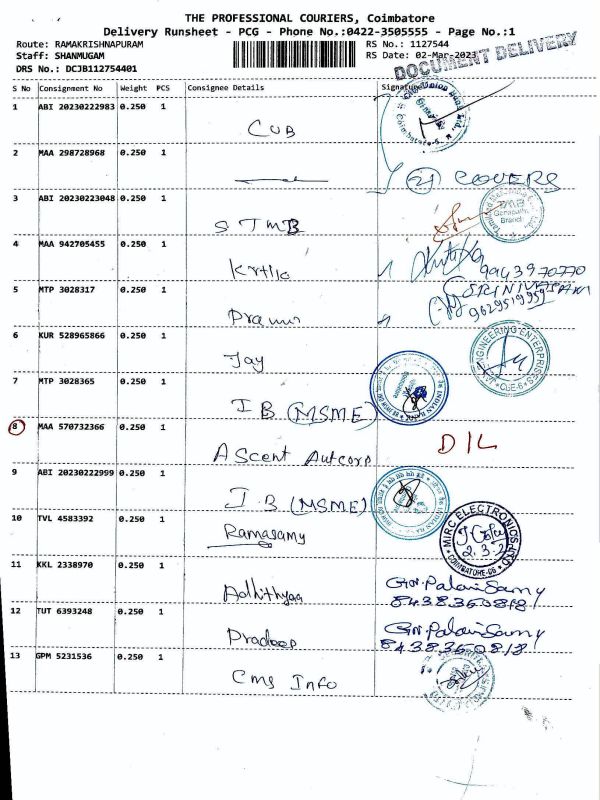 THE PROFESSIONAL COURIERS, Coimbatore
Delivery Runsheet - PCG - Phone No.:0422-3505555 - Page No.:1
Route: RAMAKRISHNAPURAM
RS No.: 1127544
Staff: SHANMUGAM
RS Date: 02-Mar-2023
DRS No.: DCJB112754401
DOCUMENT DELIVERY
S No Consignment No Weight PCS Consignee Details Signature
1 ABI 20230222983 0.250 1
CUB
2 MAA 298728968 0.250 1
(21) COVERS
3 ABI 20230223048 0.250 1
TMB
STMB
4 MAA 942705455 0.250 1
9943970770
5 MTP 3028317 0.250 1
SRINIVASAN
9629519959
6 KUR 528965866 0.250 1
ENGINEERING ENTERPRISES
CBE-6
Jay
7 MTP 3028365 0.250 1
IB (MSME)
8 MAA 570732366 0.250 1
DIL
Ascent Autcorp
9 ABI 20230222999 0.250 1
IB (MSME)
10 TVL 4583392 0.250 1
MIRC ELECTRONICS LTD
COIMBATORE-06
Ramasamy
11 KKL 2338970 0.250 1
GN.PalaniSamy
8438360818
Adhithyaa
12 TUT 6393248 0.250 1
GN.PalaniSamy
8438360818
Pradeep
13 GPM 5231536 0.250 1
Cms Info